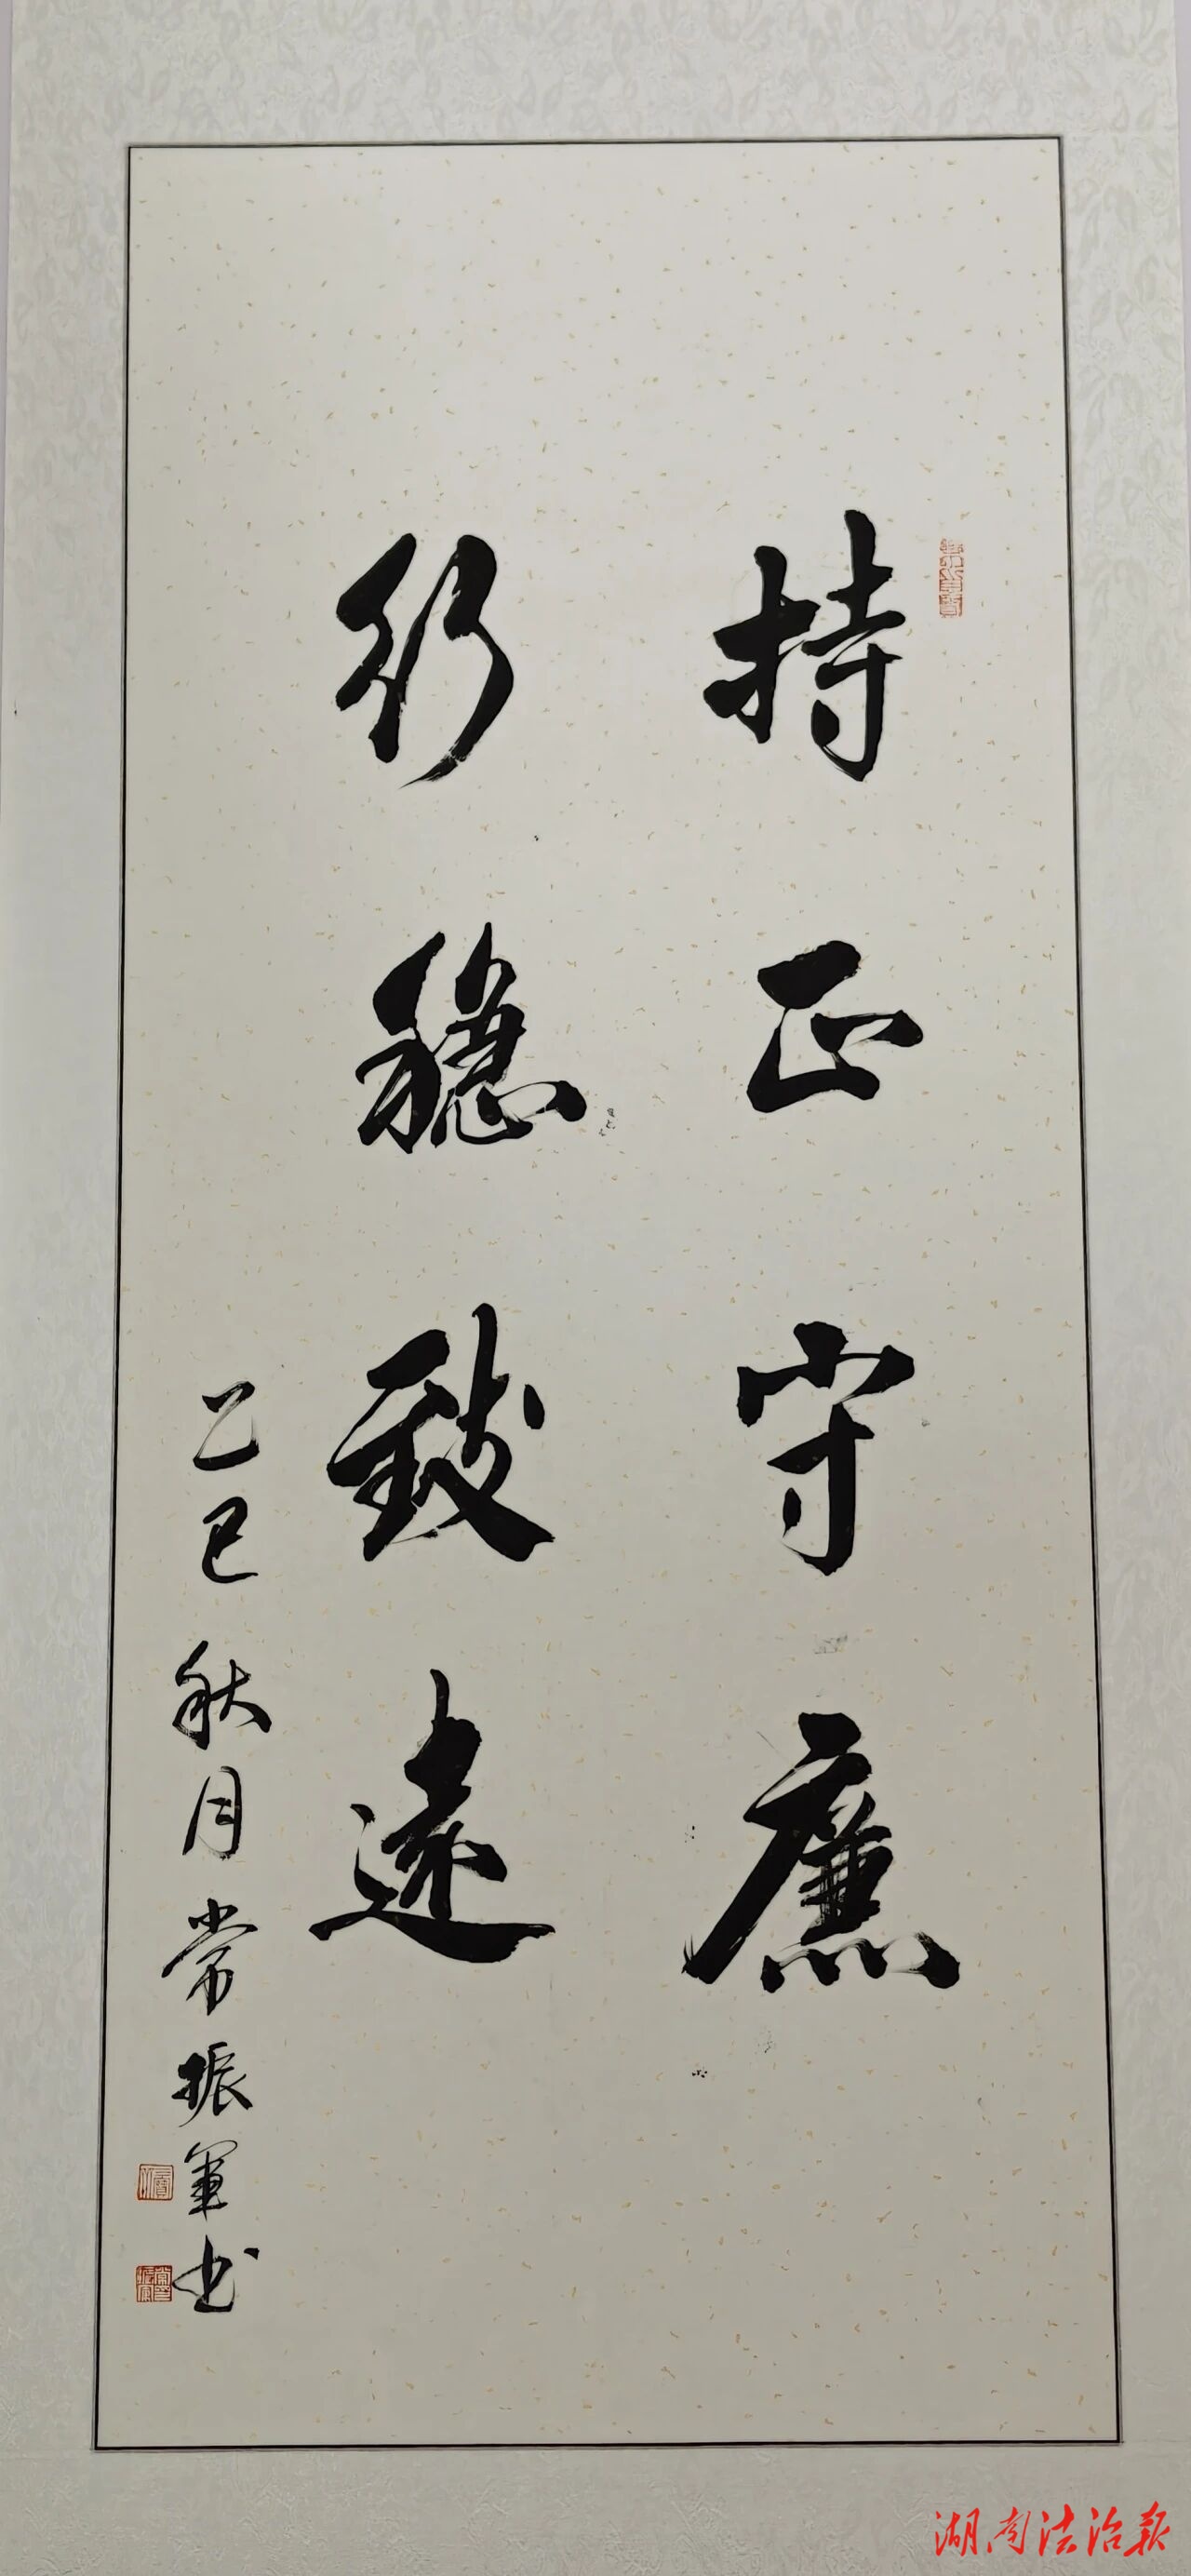 持正守廉
行穩致遠
乙巳秋月常振軍书
湖南法治报